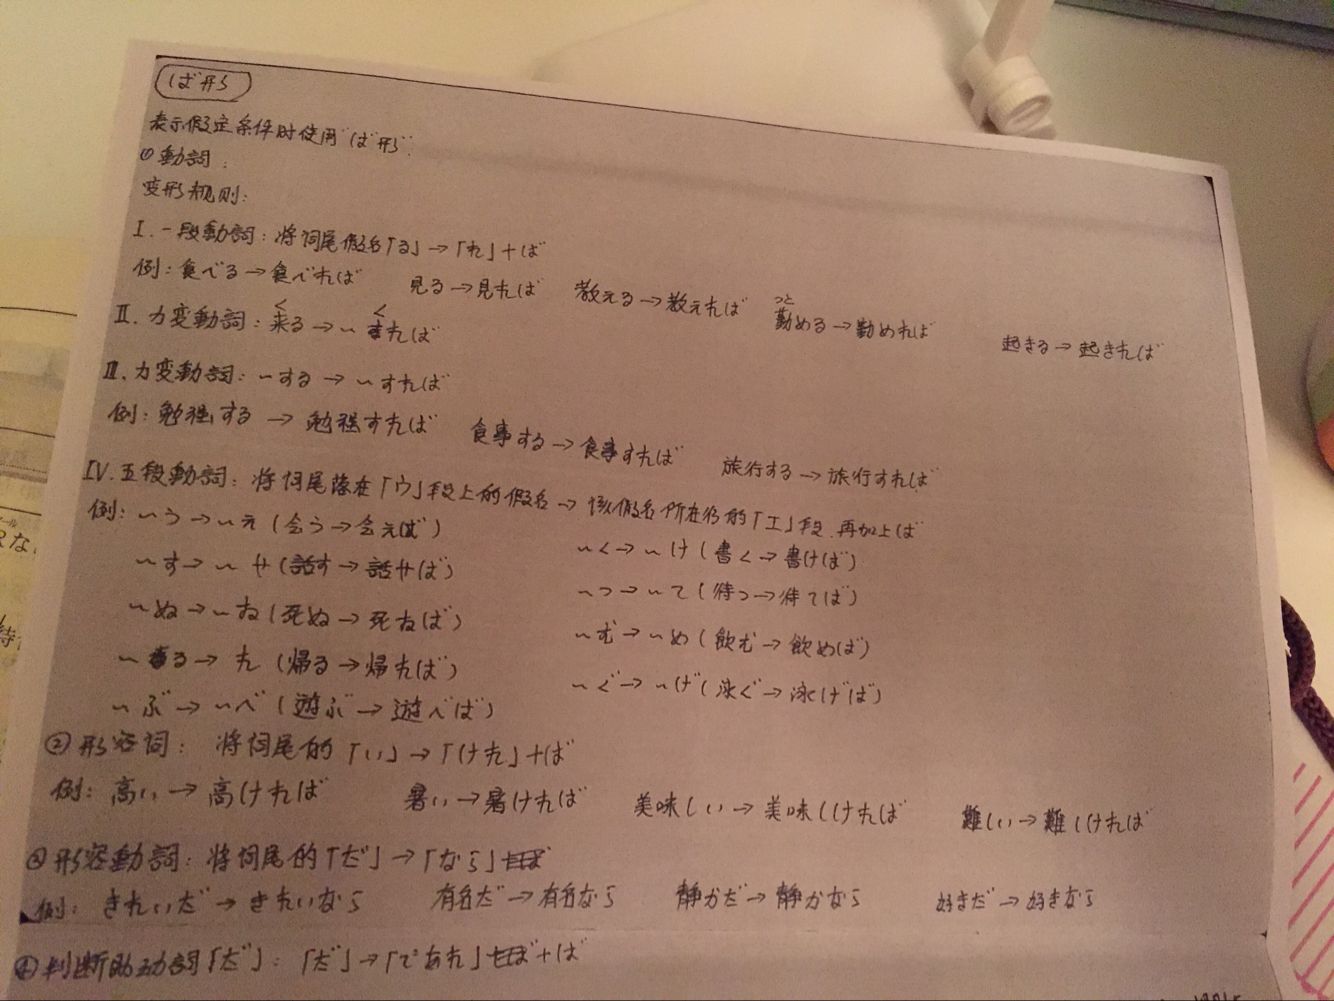 ば形
表示假定条件时使用“ば形”.
①動詞:
变形规则:
Ⅰ.一段動詞: 将词尾假名「る」→「れ」+ば
例: 食べる→食べれば 見る→見れば 教える→教えれば 勤(つと)める→勤めれば 起きる→起きれば
Ⅱ.カ変動詞: 来(く)る→~来(く)れば
Ⅲ.カ変動詞: ~する→~すれば
例: 勉強する→勉強すれば 食事する→食事すれば 旅行する→旅行すれば
Ⅳ.五段動詞: 将词尾落在「ウ」段上的假名→该假名所在行的「エ」段.再加上ば
例: ~う→~え(会う→会えば) ~く→~け(書く→書けば)
~す→~せ(話す→話せば) ~つ→~て(待つ→待てば)
~ぬ→~ね(死ぬ→死ねば) ~む→~め(飲む→飲めば)
~る→れ(帰る→帰れば) ~ぐ→~げ(泳ぐ→泳げば)
~ぶ→~べ(遊ぶ→遊べば)
②形容词: 将词尾的「い」→「けれ」+ば
例: 高い→高ければ 暑い→暑ければ 美味しい→美味しければ 難しい→難しければ
③形容動詞: 将词尾的「だ」→「なら」
例: きれいだ→きれいなら 有名だ→有名なら 静かだ→静かなら 好きだ→好きなら
④判断助动詞「だ」: 「だ」→「であれ」+ば